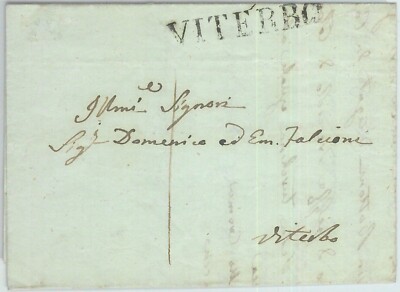 VITERBO
Illmi Signori
Sigri Domenico ed Em. Falcioni
Viterbo